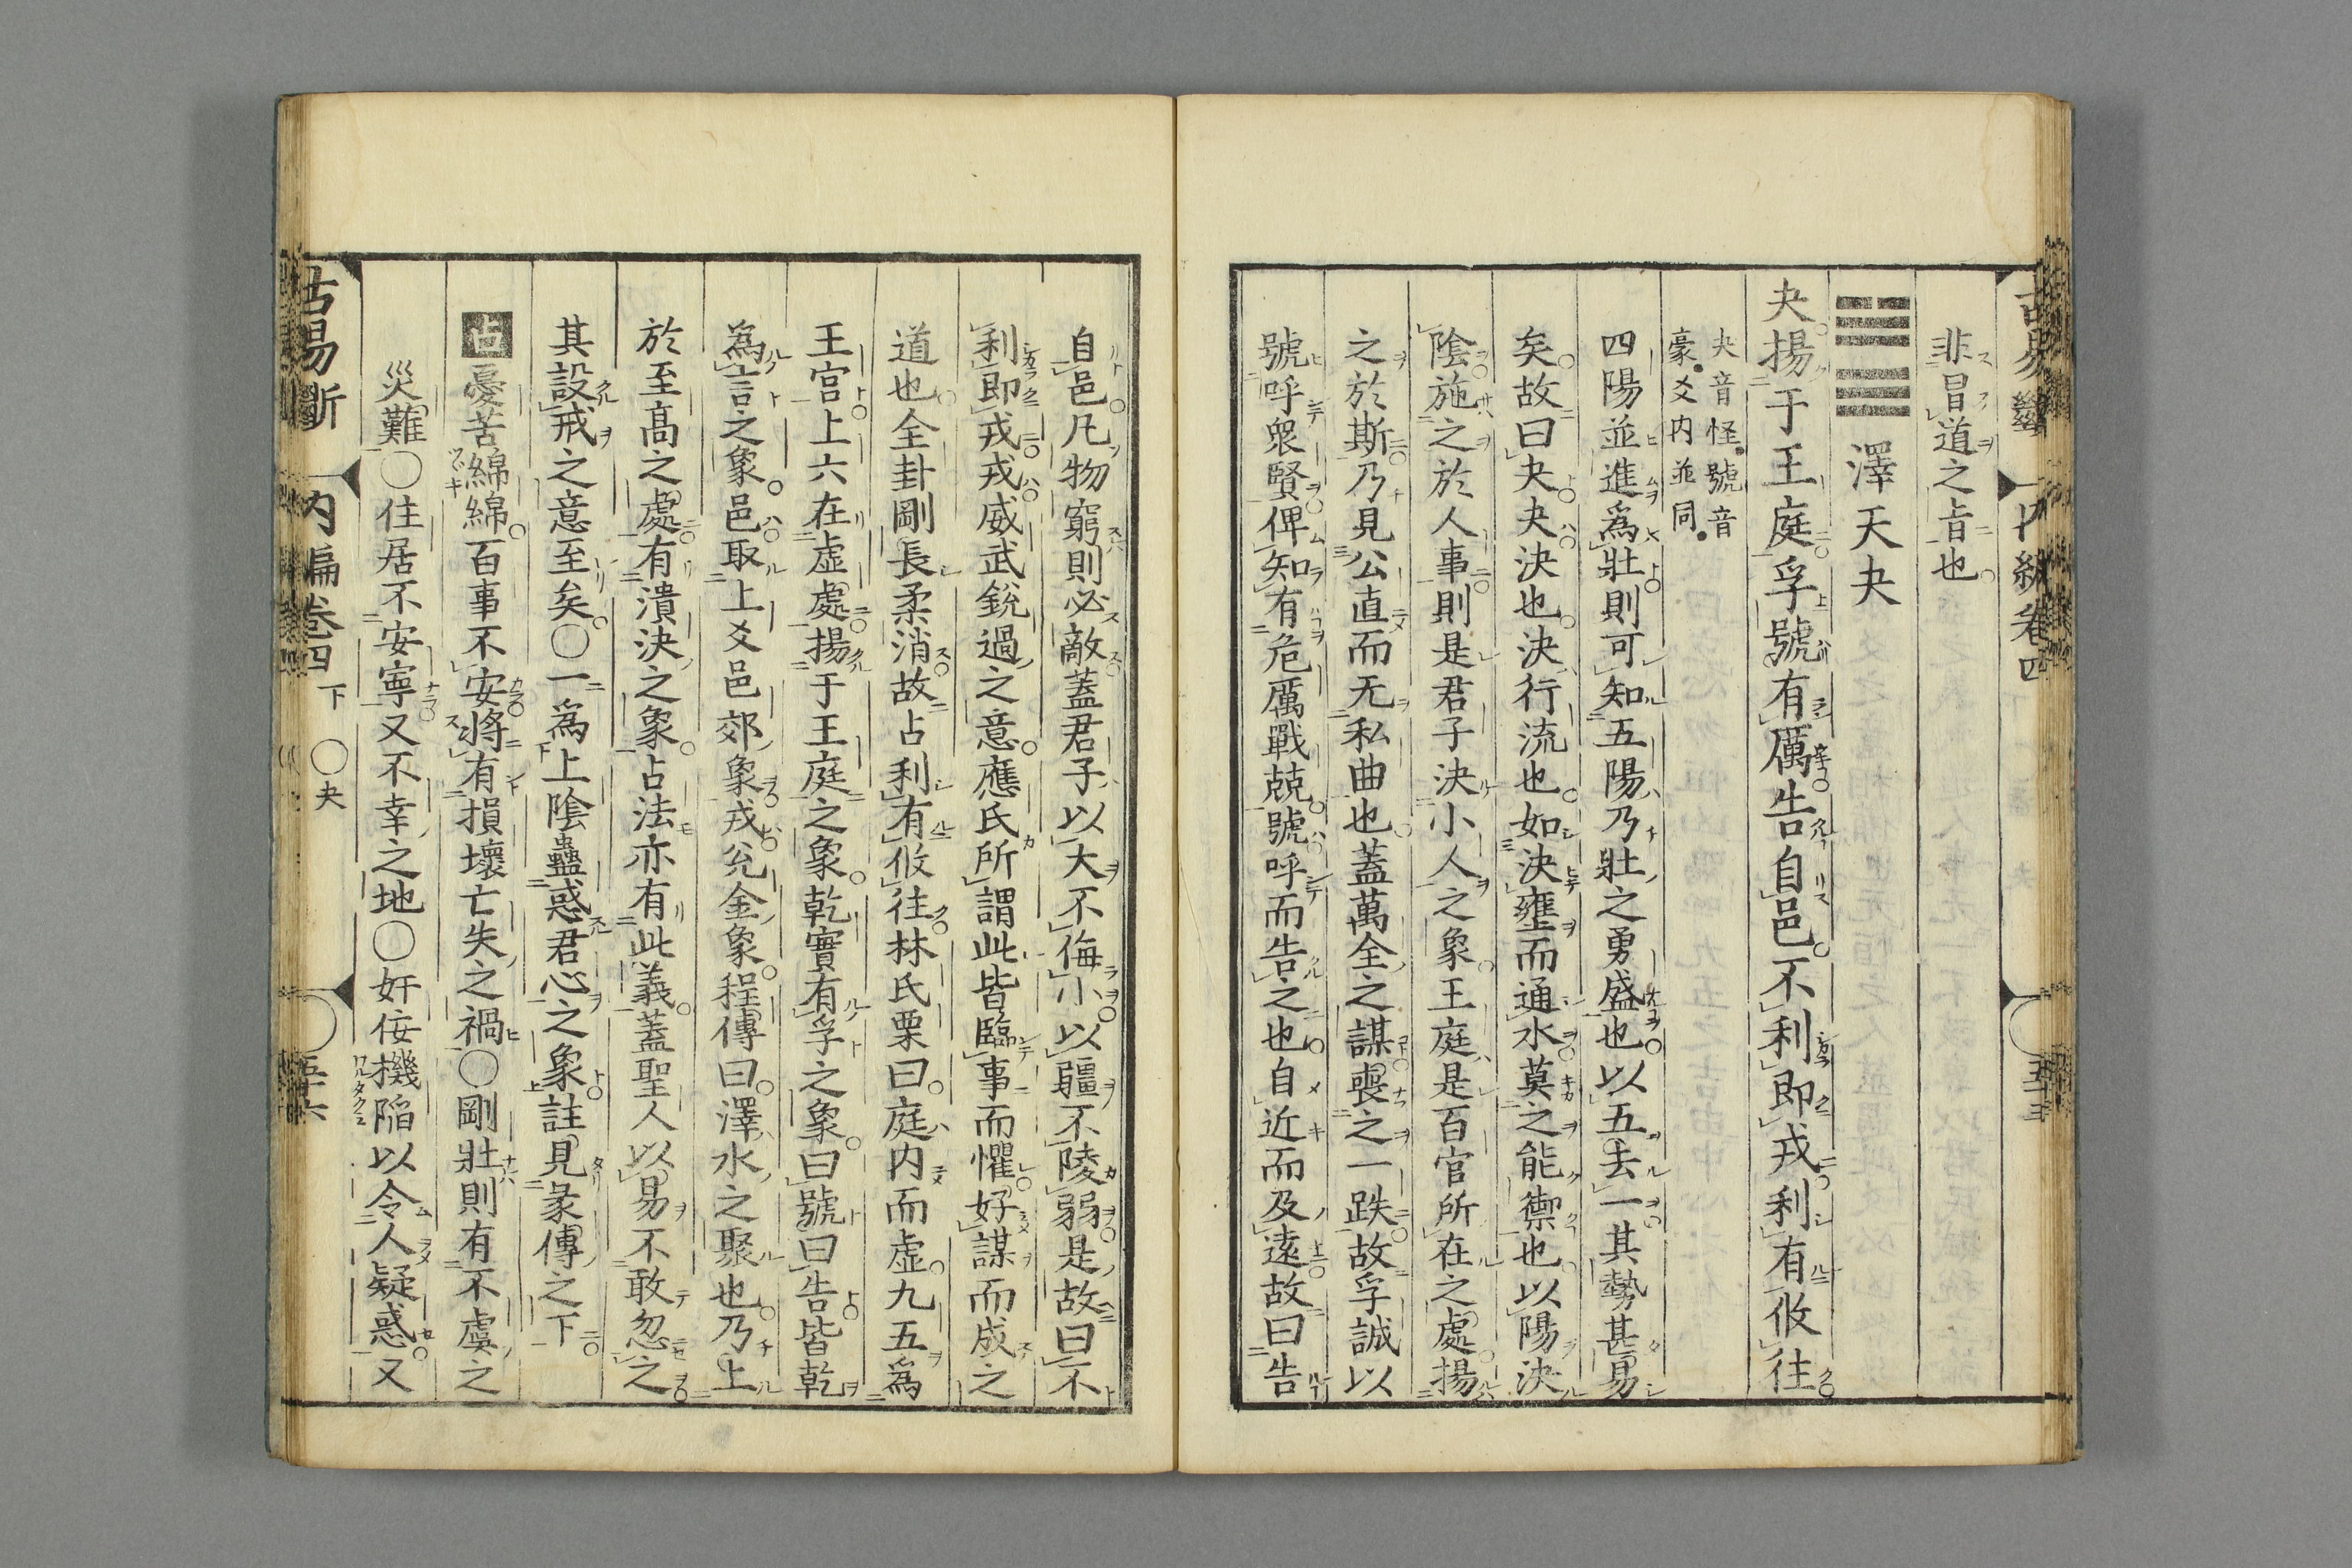 非冒道之旨也
澤天夬
夬揚于王庭孚號有厲告自邑不利即戎利有攸往
夬音怪號音
豪爻内並同
四陽並進爲壯則可知五陽乃壯之勇盛也以五去一其勢甚易
矣故曰夬夬決也決行流也如決壅而通水莫之能禦也以陽決
陰施之於人事則是君子決小人之象王庭是百官所在之處揚
之於斯乃見公直而无私曲也蓋萬全之謀喪之一跌故孚誠以
號呼衆賢俾知有危厲戰兢號呼而告之也自近而及遠故曰告
自邑凡物窮則必敵蓋君子以大不侮小以彊不陵弱是故曰不
利即戎戎威武銳過之意應氏所謂此皆臨事而懼好謀而成之
道也全卦剛長柔消故占利有攸往林氏栗曰庭内而虛九五爲
王宮上六在虛處揚于王庭之象乾實有孚之象曰號曰告皆乾
為言之象邑取上爻邑郊象戎兌金象程傳曰澤水之聚也乃上
於至高之處有潰決之象占法亦有此義蓋聖人以易不敢忽之
其設戒之意至矣〇一為上陰蠱惑君心之象註見彖傳之下
占憂苦綿綿百事不安將有損壞亡失之禍〇剛壯則有不虞之
災難〇住居不安寧又不幸之地〇奸佞機陷以令人疑惑又
古易斷 内編卷四 下 〇夬 五十六